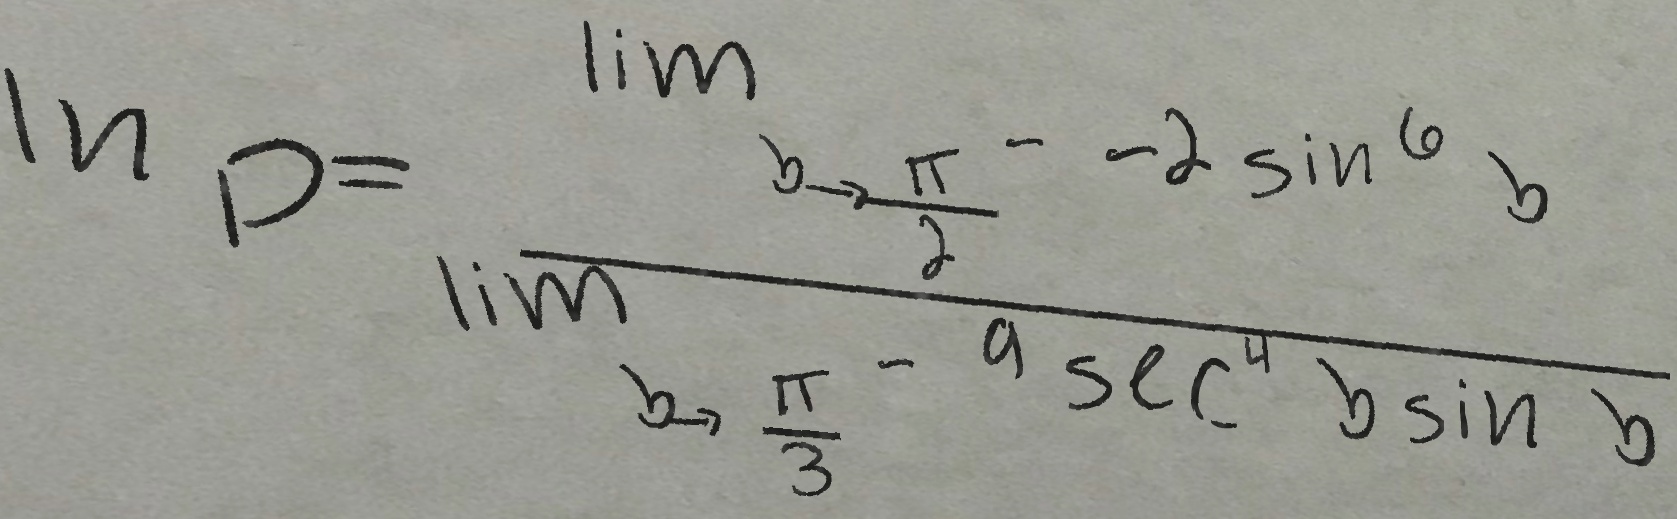 ln p = \frac{\lim_{b \to \frac{\pi}{2}^-} -2 \sin^6 b}{\lim_{b \to \frac{\pi}{3}^-} 9 \sec^4 b \sin b}